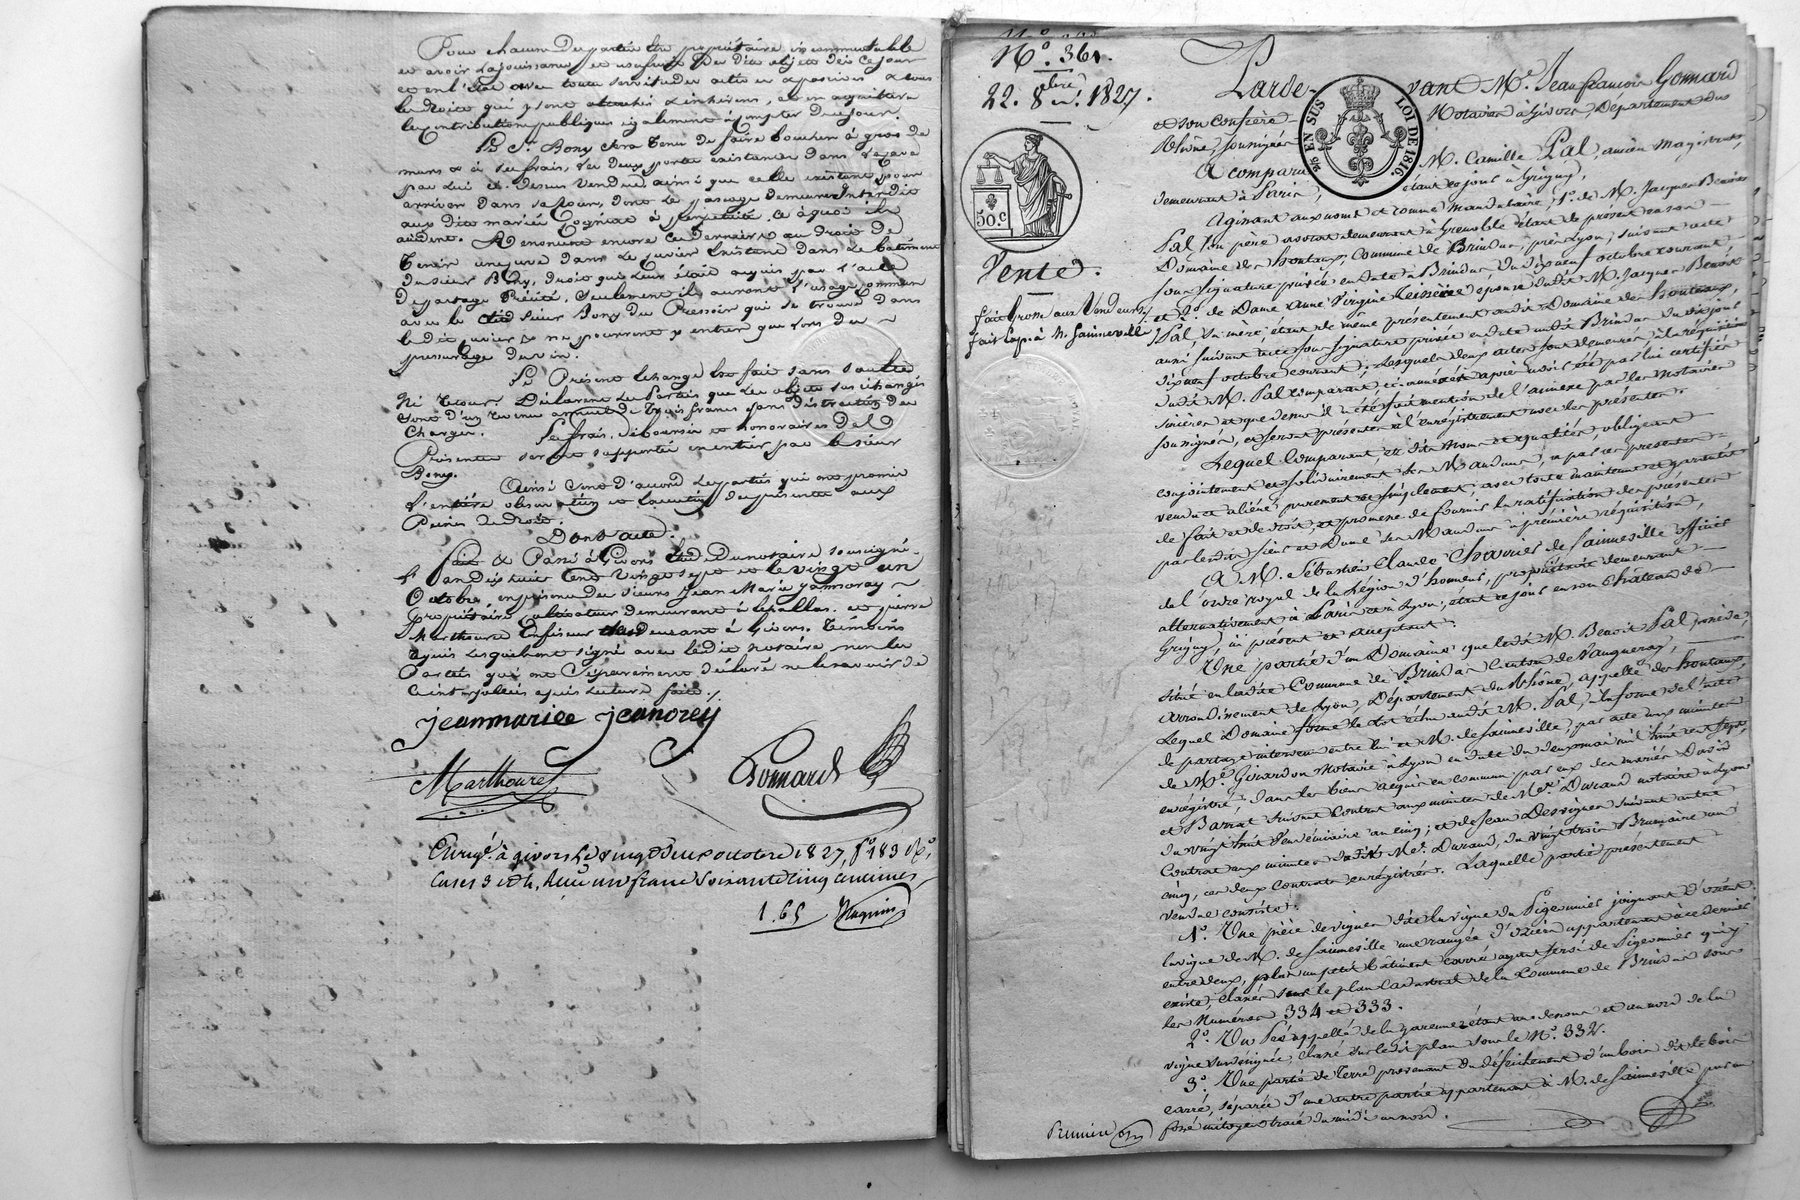 Pour chacun des parties être propriétaire incommutable
et avoir la jouissance et usufruit des dits objets dès ce jour
et en l'état avec toutes servitudes actives et passives et tous
les droits qui y sont attachés et inhérens, et en acquitter
les contributions publiques également à compter de ce jour.
Le Sr. Bony sera tenu de faire boucher à gros de
murs et à ses frais, les deux portes existantes dans
par lui ci-dessus vendue ainsi que celle existant pour
arriver dans sa cour, dont le passage demeure interdit
aux dits mariés Cognat à perpétuité, ce à quoi ils
aident. Renoncent encore ces derniers au droit de
tenir une cuve dans le cuvier existant dans le bâtiment
du sieur Bony, droit qui leur était acquis par l'acte
de partage précité. Seulement ils auront l'usage commun
avec le dit sieur Bony du Pressoir qui se trouve dans
le dit cuvier et ne pourront y entrer que lors du
pressurage du vin.
Le Présent échange est fait sans soulte
Ni retour. Déclarent les Parties que les objets sus échangés
sont d'un revenu annuel de trois francs sans distraction des
Charges. Les frais, déboursés et honoraires des
Présentes seront supportés en entier par le sieur
Bony.
Ainsi sont d'accord les parties qui ont promis
l'entière observation et l'exécution des présentes aux
Peines de droit.
Dont acte.
Fait & Passé à Givors étude du notaire soussigné
L'an dix huit cent vingt sept et le vingt un
Octobre, en présence des sieurs Jean Marie
propriétaire cultivateur demeurant à et pierre
Marthouret demeurant à Givors. Témoins
requis lesquels ont signé avec le dit notaire, non les
Parties qui ont séparément déclaré ne le savoir de
ce interpellées après lecture faite.
jeanmarice jeanorey
Marthouret Gonnard
Enregé. à Givors le vingt deux octobre 1827, fo. 183 Ro.
Cases 3 et 4, Reçu un franc soixante cinq centimes
1.65
No. 361.
22. 8bre. 1827.
50. c
Vente.
fait Grosse aux Vendeurs
fait Exp. à M. Sainneville
2/6 EN SUS LOI DE 1816
Parde-vant Me. Jean françois Gonnard
et son Confrère Notaires à Givors, Département du
Rhône, soussignés
A comparu M. Camille Pal, ancien magistrat,
demeurant à Paris, étant ce jour à Grigny,
Agissant aux noms et comme mandataire, 1o. de M. Jacques Benoit
Pal, son père avocat demeurant à Grenoble étant de présent en son
Domaine des hoteaux, Commune de Brindas, près Lyon, suivant acte
sous signature privée en date à Brindas, du dix neuf octobre courant
et 2o. de Dame Anne Virginie Teisseire épouse du dit M. Jacques Benoit
Pal, sa mère, étant de même présentement au dit Domaine des hoteaux,
aussi suivant acte sous signature privée en date au dit Brindas du dit jour
dix neuf octobre courant; lesquels deux actes sont demeurés, à la réquisition
du dit M. Pal comparant ci-annexés après avoir été par lui certifiés
sincères et que dessus il a été fait mention de l'annexe par les notaires
soussignés, et seront présentés à l'enregistrement avec les présentes.
Lequel Comparant, ès dits Noms et qualités, obligeant
conjointement et solidairement ses Mandans, a par ces présentes
vendu et aliéné, purement et simplement avec toute maintenue et garantie
de fait et de droit, et promesse de fournir la ratification des présentes
par les dits Sieur et Dame ses Mandans à première réquisition,
A M. Sébastien Claude Charrier de Sainneville officier
de l'ordre royal de la Légion d'honneur, propriétaire demeurant
alternativement à Paris et à Lyon, étant ce jour en son Château de
Grigny, ici présent et acceptant.
Une partie d'un Domaine que le dit M. Benoit Pal possède,
situé en ladite Commune de Brindas Canton de Vaugneray,
arrondissement de Lyon, Département du Rhône, appellé des hoteaux,
Lequel Domaine forme le Lot échu au dit M. Pal, en forme de l'acte
de partage intervenu entre lui et M. de Sainneville, par acte aux minutes
de Me. Girardon Notaire à Lyon en date du deux mai mil huit cent sept,
enregistré, dans les biens acquis en commun par eux des mariés David
et Barrat suivant Contrat aux minutes de Me. Durand notaire à Lyon
du vingt huit Vendémiaire an cinq; et de Jean Desvignes suivant autre
Contrat aux minutes du dit Me. Durand, du vingt trois Brumaire an
cinq, ces deux Contrats enregistrés. Laquelle partie présentement
vendue consiste.
1o. Une pièce de vignes dite la vigne du Pigeonnier joignant d'orient
la vigne de M. de Sainneville une rangée d'ozier appartenant à ce dernier
entre deux, plus un petit bâtiment carré ayant servi de Pigeonnier qui y
existe, classés sous le plan Cadastral de la Commune de Brindas sous
les Numéros 334 et 333.
2o. Un Pré appellé de la garenne étant au dessous et au nord de la
vigne susdésignée, classé sur le dit plan sous le No. 332.
3o. Une partie de Terre provenant du défrichement d'un bois dit le bois
carré, séparée d'une autre partie appartenant à M. de Sainneville par un
fossé mitoyen tracé du midi au nord.
Première